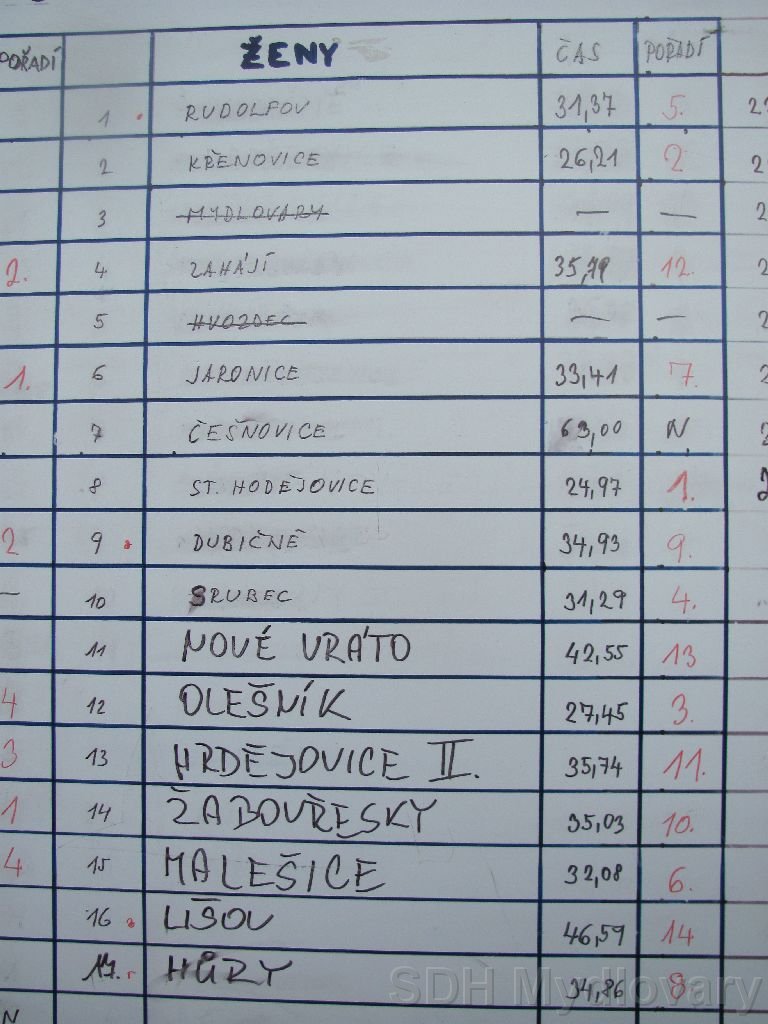 POŘADÍ ŽENY ČAS POŘADÍ
1 RUDOLFOV 31,37 5.
2 KŘENOVICE 26,21 2
3 MYDLOVARY — —
2. 4 ZAHÁJÍ 35,79 12.
5 HVOZDEC — —
1. 6 JARONICE 33,41 7.
7 ČEŠŇOVICE 63,00 N
8 ST. HODĚJOVICE 24,97 1.
2 9 DUBIČNÉ 34,93 9.
— 10 SRUBEC 31,29 4.
11 NOVÉ VRÁTO 42,55 13
4 12 OLEŠNÍK 27,45 3.
3 13 HRDĚJOVICE II. 35,74 11.
1 14 ŽABOVŘESKY 35,03 10.
4 15 MALEŠICE 32,08 6.
16 LIŠOV 46,59 14
17. HŮRY 34,86 8
N
SDH Mydlovary